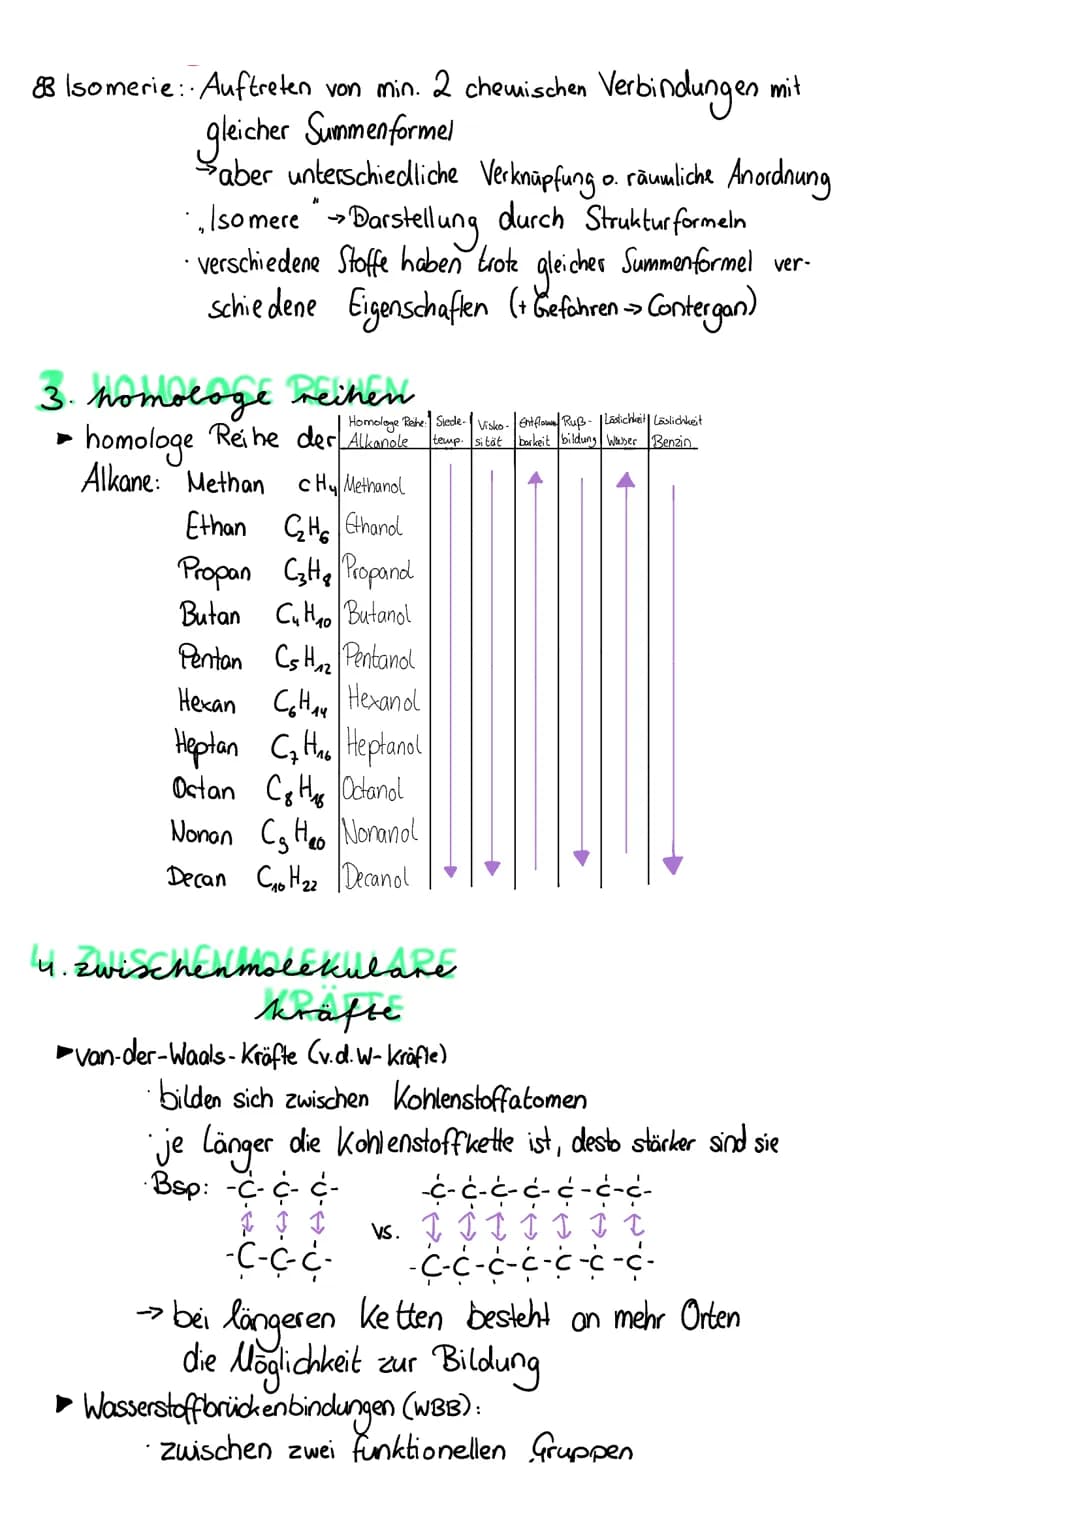 Isomerie: · Auftreten von min. 2 chemischen Verbindungen mit
gleicher Summenformel
→ aber unterschiedliche Verknüpfung o. räumliche Anordnung
· „Isomere" → Darstellung durch Strukturformeln
· verschiedene Stoffe haben trotz gleicher Summenformel ver-
schiedene Eigenschaften (+ Gefahren → Contergan)
3. homologe Reihen
► homologe Reihe der
Alkane: Methan CH4
Ethan C2H6
Propan C3H8
Butan C4H10
Pentan C5H12
Hexan C6H14
Heptan C7H16
Octan C8H18
Nonan C9H20
Decan C10H22
Homologe Reihe: Siede- Visko- Entflamm Ruß- Löslichkeit Löslichkeit
Alkanole temp. sität barkeit bildung Wasser Benzin
Methanol
Ethanol
Propanol
Butanol
Pentanol
Hexanol
Heptanol
Octanol
Nonanol
Decanol
4. zwischenmolekulare
kräfte
► van-der-Waals-Kräfte (v.d.W-kräfte)
· bilden sich zwischen Kohlenstoffatomen
· je länger die Kohlenstoffkette ist, desto stärker sind sie
· Bsp: -C-C-C- -C-C-C-C-C-C-C-
vs.
-C-C-C- -C-C-C-C-C-C-C-
→ bei längeren Ketten besteht an mehr Orten
die Möglichkeit zur Bildung
► Wasserstoffbrückenbindungen (WBB):
· zwischen zwei funktionellen Gruppen